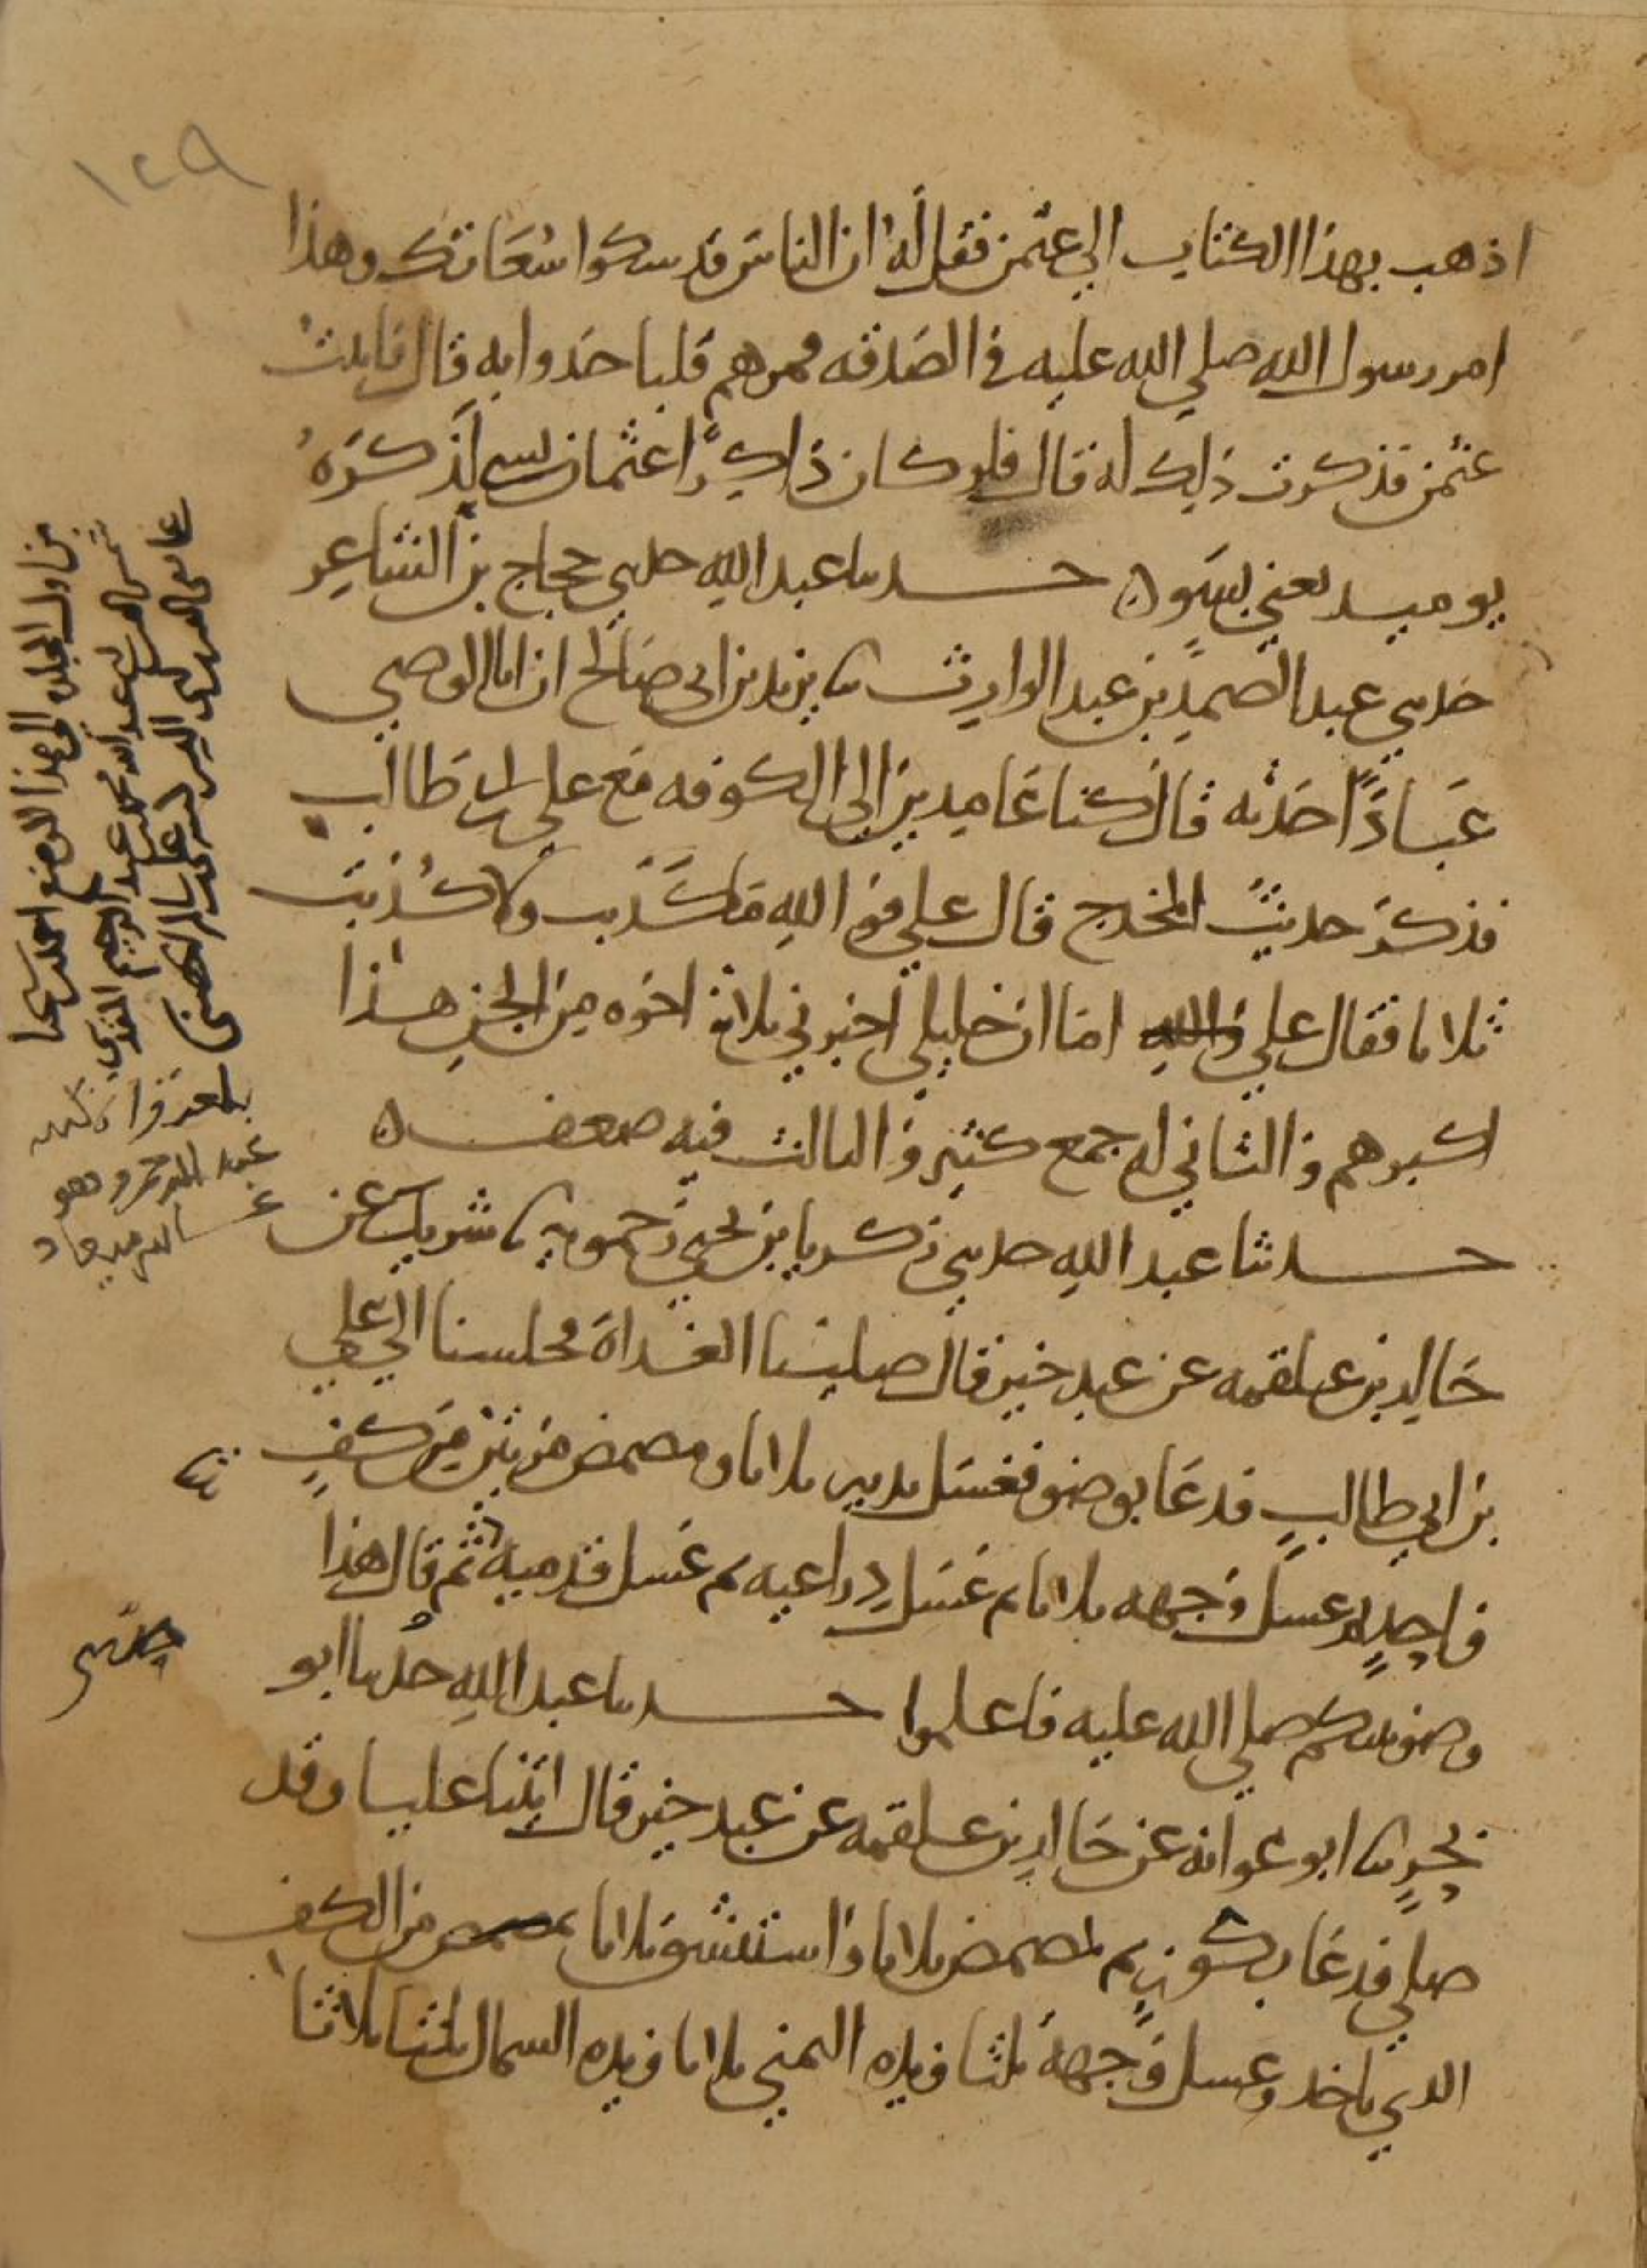 ١٢٩
اذهب بهذا الكتاب الى عثمن فقل له ان الناس قد سكوا سعاتك وهذا
امر رسول الله صلى الله عليه في الصدقه فمرهم فلياخدوا به قال فاتيت
عثمن فذكرت ذلك له قال فلو كان ذاكرا عثمان بسي لذكره
يوميد يعني بسو ه حدثنا عبد الله حدثني حجاج بن الشاعر
حدثني عبد الصمد بن عبد الوارث ثنا يزيد بن ابي صالح ان ابا الوضي
عبادا حدثه قال كنا عامدين الى الكوفه مع علي بن ابي طالب
فذكر حديث المخدج قال علي فو الله ما كذبت ولا كذبت
ثلاثا فقال علي والله اما ان خليلي اخبرني ثلاثة اخوه من الجن هذا
اكبرهم والثاني له جمع كثير والثالث فيه ضعف ه
حدثنا عبد الله حدثني زكريا بن يحيى زحمويه ثنا شريك عن
خالد بن علقمه عن عبد خير قال صلينا الغداة فجلسنا الى علي
بن ابي طالب فدعا بوضو فغسل يديه ثلاثا ومضمض مرتين من كف
واحد ثم غسل وجهه ثلاثا ثم غسل ذراعيه ثم غسل قدميه ثم قال هذا
وضو نبيكم صلى الله عليه فاعلموا حدثنا عبد الله حدثنا ابو
بحر ثنا ابو عوانه عن خالد بن علقمه عن عبد خير قال اتينا عليا وقد
صلى فدعا بكوز ثم تمضمض ثلاثا واستنشق ثلاثا تمضمض من الكف
الدي ياخد وغسل وجهه ثلثا ويده اليمنى ثلاثا ويده السمال ثلثا ثلاثا
من اول المجلد الى هذا الموضع
عبد الله محمد بن عبد الرحيم المقدسي
حدثني